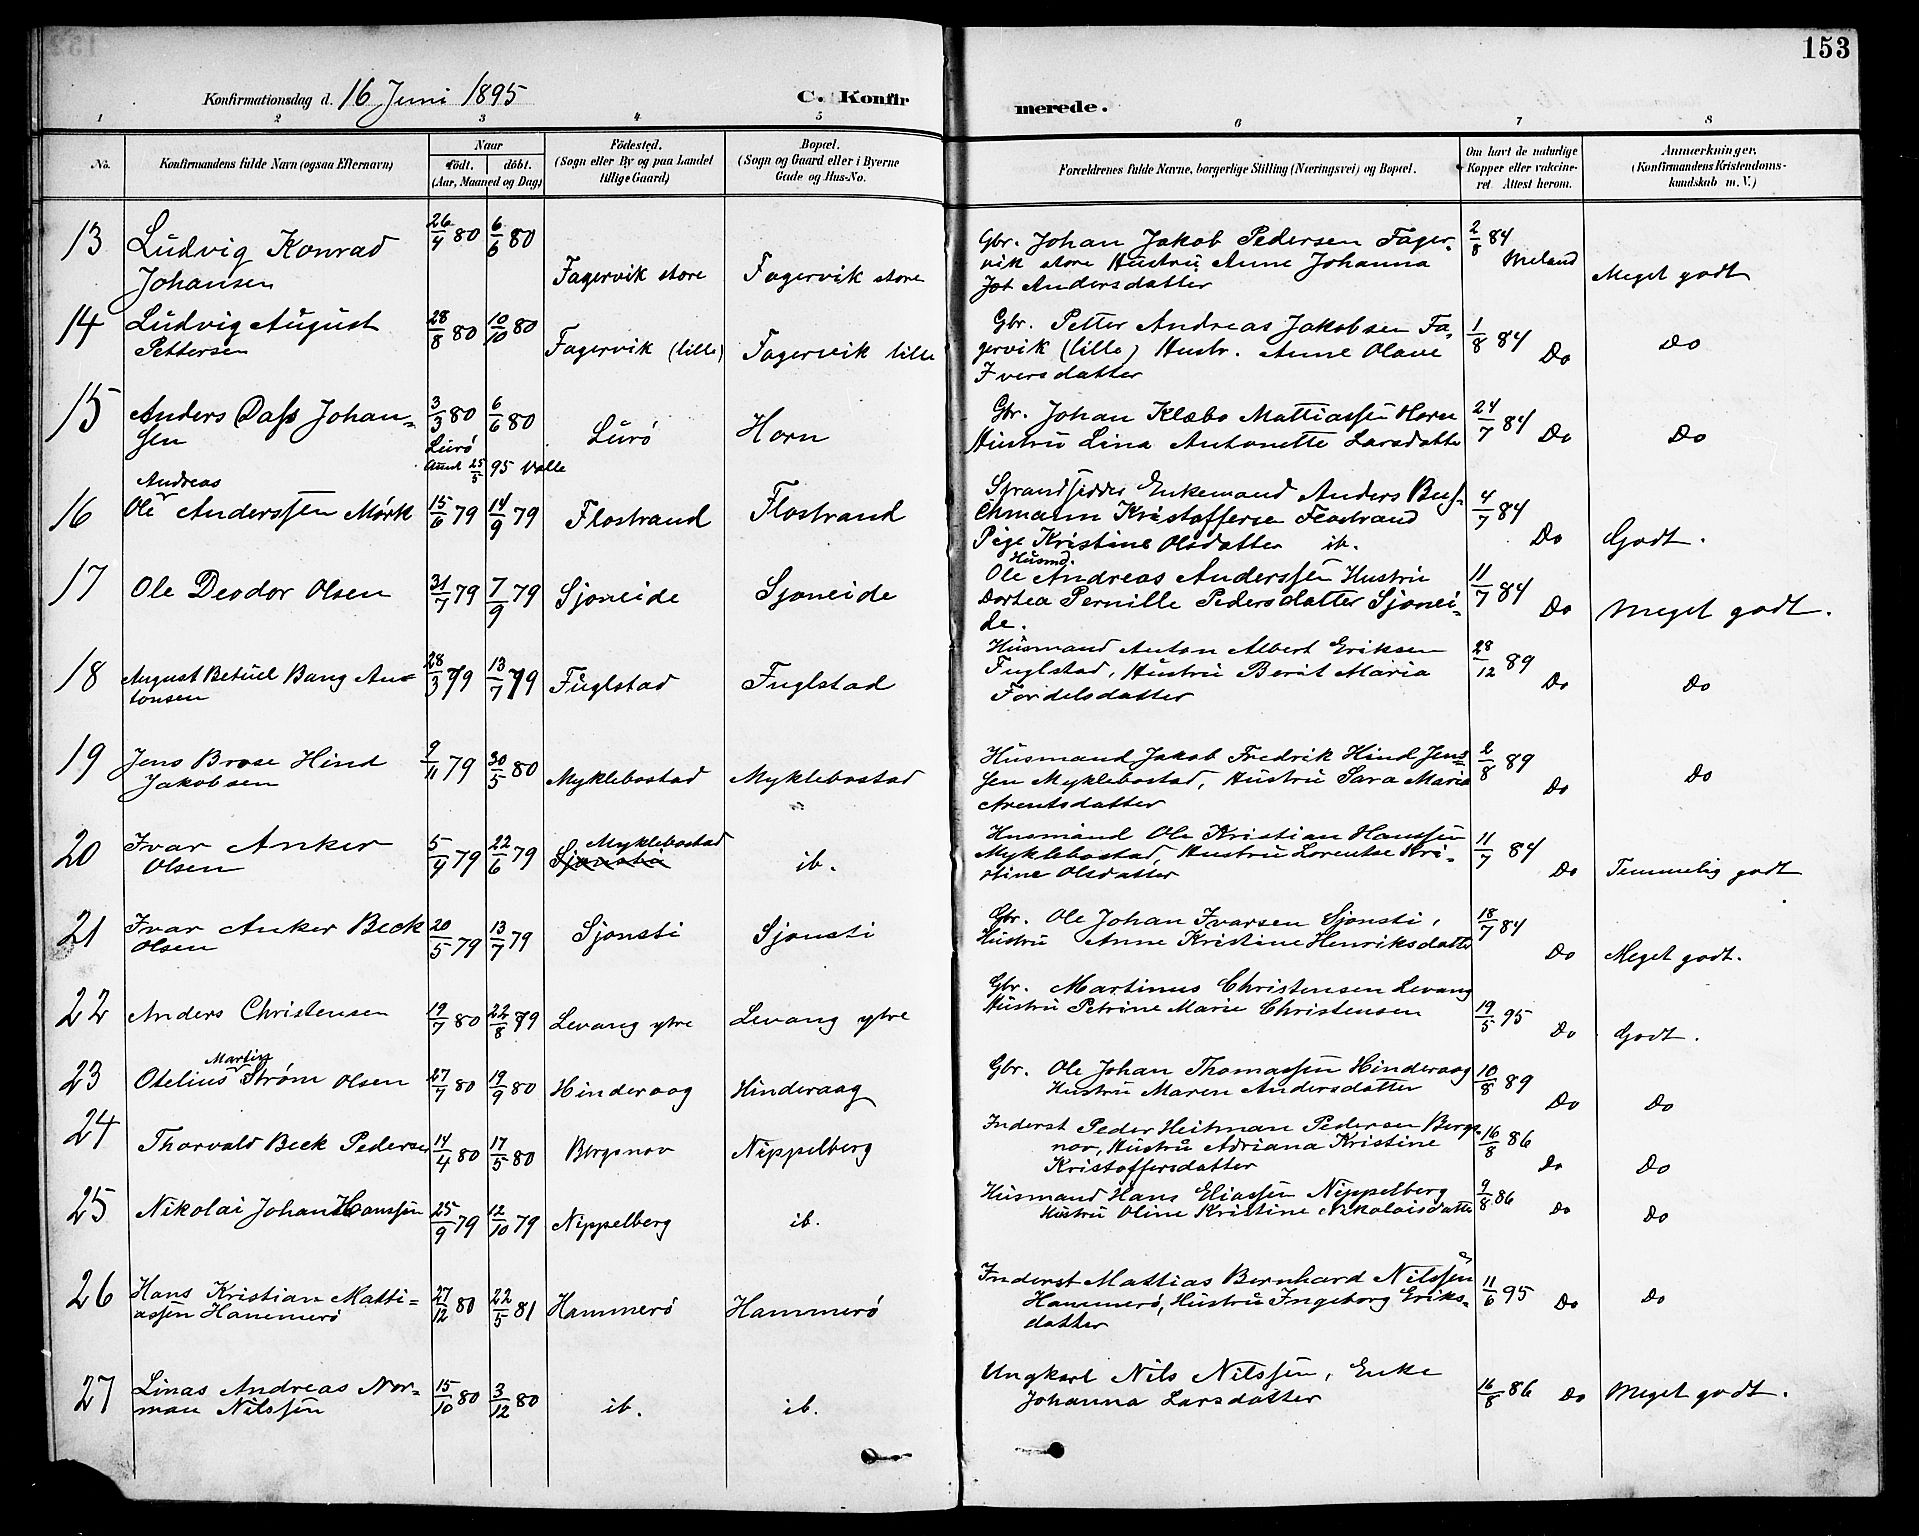 153
Konfirmationsdag d. 16 Juni 1895
C. Konfirmerede.
1 2 3 4 5 6 7 8
No. Konfirmandens fulde Navn (ogsaa Efternavn) Naar født. døbt. (Aar, Maaned og Dag) Fødested. (Sogn eller By og paa Landet tillige Gaard) Bopæl. (Sogn og Gaard eller i Byerne Gade og Hus-No. Forældrenes fulde Navne, borgerlige Stilling (Næringsvei) og Bopæl. Om havt de naturlige Kopper eller vakcineret. Attest herom. Anmærkninger. (Konfirmandens Kristendomskundskab m. V.)
13 Ludvig Konrad 26/4 80 6/6 80 Gbr. Johan Jakob Pedersen Fager- 2/8 84
Johansen Fagervik store Fagervik store vik store Hustru Anne Johanna Meland Meget godt
Andersdatter
14 Ludvig August 28/8 80 10/10 80 Gbr. Petter Andreas Jakobsen Fa- 1/8 84
Pettersen Fagervik (lille) Fagervik lille gervik (lille) Hustr. Anne Olave Do Do
Iversdatter
15 Anders Dass Johan- 3/3 80 6/6 80 Lurø Horn Gbr. Johan Klæbo Mattiassen Horn 24/7 84
sen Lurø Hustru Lina Antonette Larsdatter Do Do
Attest 25/5 95 Valle
Andreas
16 Ole Anderssen Mørk 15/6 79 14/9 79 Flostrand Flostrand Strandsidder Enkemand Anders Bus- 4/7 84
chmann Kristofferse Flostrand
Pige Kristine Olsdatter ib. Do Godt.
Husmd.
17 Ole Deodor Olsen 31/7 79 7/9 79 Sjoneide Sjoneide Ole Andreas Anderssen Hustru 11/7 84
Dortea Pernille Pedersdatter Sjonei- Do Meget godt.
de.
18 August Betuel Bang An- 28/3 79 13/7 79 Fuglstad Fuglstad Husmand Anton Albert Eriksen 28/12 89
tonsen Fuglstad, Hustru Berit Maria Do Do
Fordelsdatter
19 Jens Brose Hind 9/11 79 30/5 80 Husmand Jakob Fredrik Hind Jens- 2/8 89
Jakobsen Myklebostad Myklebostad sen Myklebostad, Hustru Sara Maria Do Do
Arentsdatter
20 Ivar Anker 5/4 79 22/6 79 Myklebostad Husmand Ole Kristian Hanssen 11/7 84
Olsen ib. Myklebostad, Hustru Lorentse Kri- Do Temmelig godt
stine Olsdatter
21 Ivar Anker Beck 20/5 79 13/7 79 Sjonsti Sjonsti Gbr. Ole Johan Ivarsen Sjonsti, 18/7 84
Olsen Hustru Anne Kristine Henriksdatter Do Meget godt.
22 Anders Christensen 19/7 80 22/8 79 Levang ytre Levang ytre Gbr. Martinus Christensen Levang
Hustru Petrine Marie Christensen 19/5 95 Do Godt.
Martin
23 Otelius Strøm Olsen 27/7 80 19/9 80 Hinderaag Hinderaag Gbr. Ole Johan Thomassen Hinderaag 10/8 89
Hustru Maren Andersdatter Do Do
24 Thorvald Beck Pedersen 14/4 80 17/5 80 Bergsnov Nippelberg Inderst Peder Heitman Pedersen Bergs-
nov, Hustru Adriana Kristine 16/8 86
Kristoffersdatter Do Do
25 Nikolai Johan Hanssen 25/9 79 12/10 79 Nippelberg ib. Husmand Hans Eliassen Nippelberg 9/8 86
Hustru Oline Kristine Nikolaisdatter Do Do
26 Hans Kristian Matti- 27/12 80 22/5 81 Hammerø Hammerø Inderst Mattias Bernhard Nilssen 11/6 95
assen Hammerø Hammerø, Hustru Ingeborg Eriks- Do Do
datter
27 Linas Andreas Nor- 15/10 80 3/12 80 ib. ib. Ungkarl Nils Nilssen, Enke 16/8 86 Do Meget godt.
man Nilssen Johanna Larsdatter